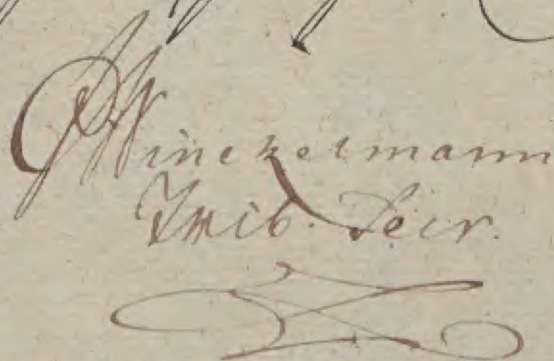 Winckelmann
Trib. Secr.